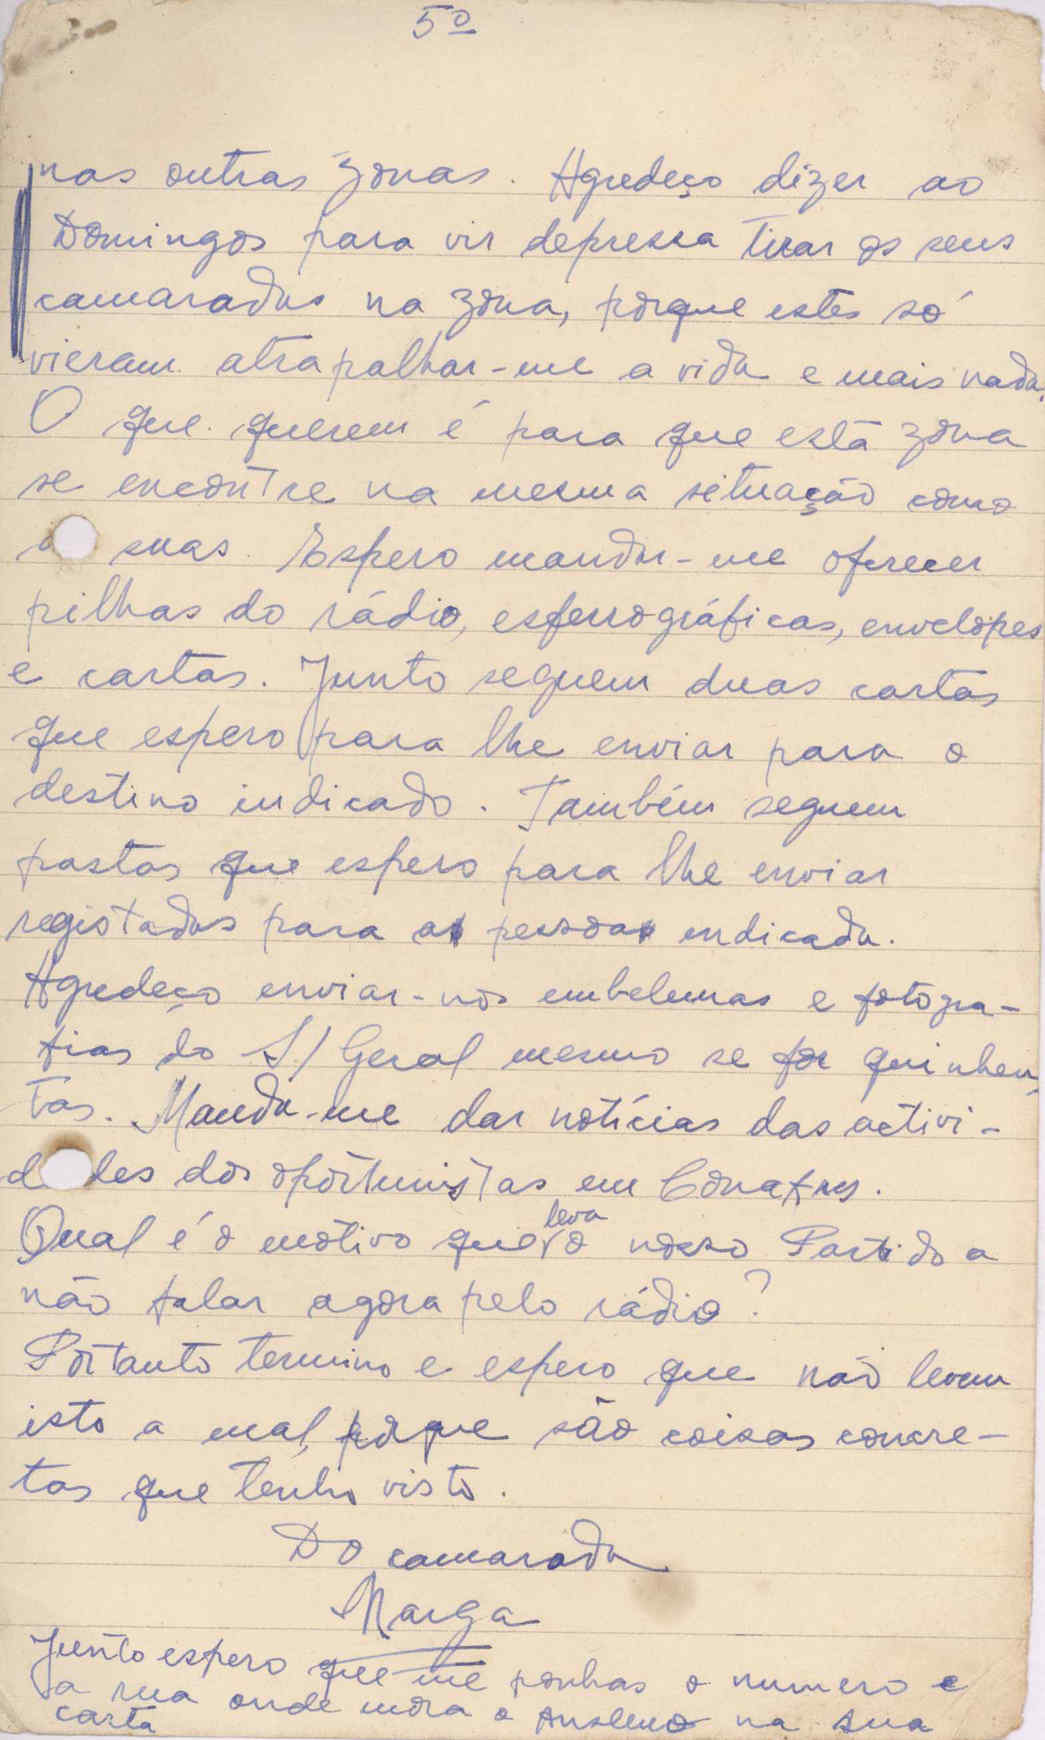 5º
nas outras zonas. Agredeço dizer ao
Domingos para vir depressa tirar os seus
camaradas na zona, porque estes só
vieram atrapalhar-me a vida e mais nada.
O que querem é para que está zona
se encontre na mesma situação como
suas. Espero mandar-me oferecer
pilhas do rádio, esferrográficas, envelopes
e cartas. Junto seguem duas cartas
que espero para lhe enviar para o
destino indicado. Também seguem
pastas que espero para lhe enviar
registadas para a pessoa indicada.
Agredeço enviar-nos embelemas e fotogra-
fias do S/Geral mesmo se for quinhen-
tas. Manda-me dar notícias das activi-
dades dos oportunistas em Conakry.
Qual é o motivo que leva o nosso Partido a
não falar agora pelo rádio?
Portanto termino e espero que não levem
isto a mal, porque são coisas concre-
tas que tenho visto.
Do camarada
Marga
Junto espero que me ponhas o numero e
a rua onde mora o Anselmo na sua
carta